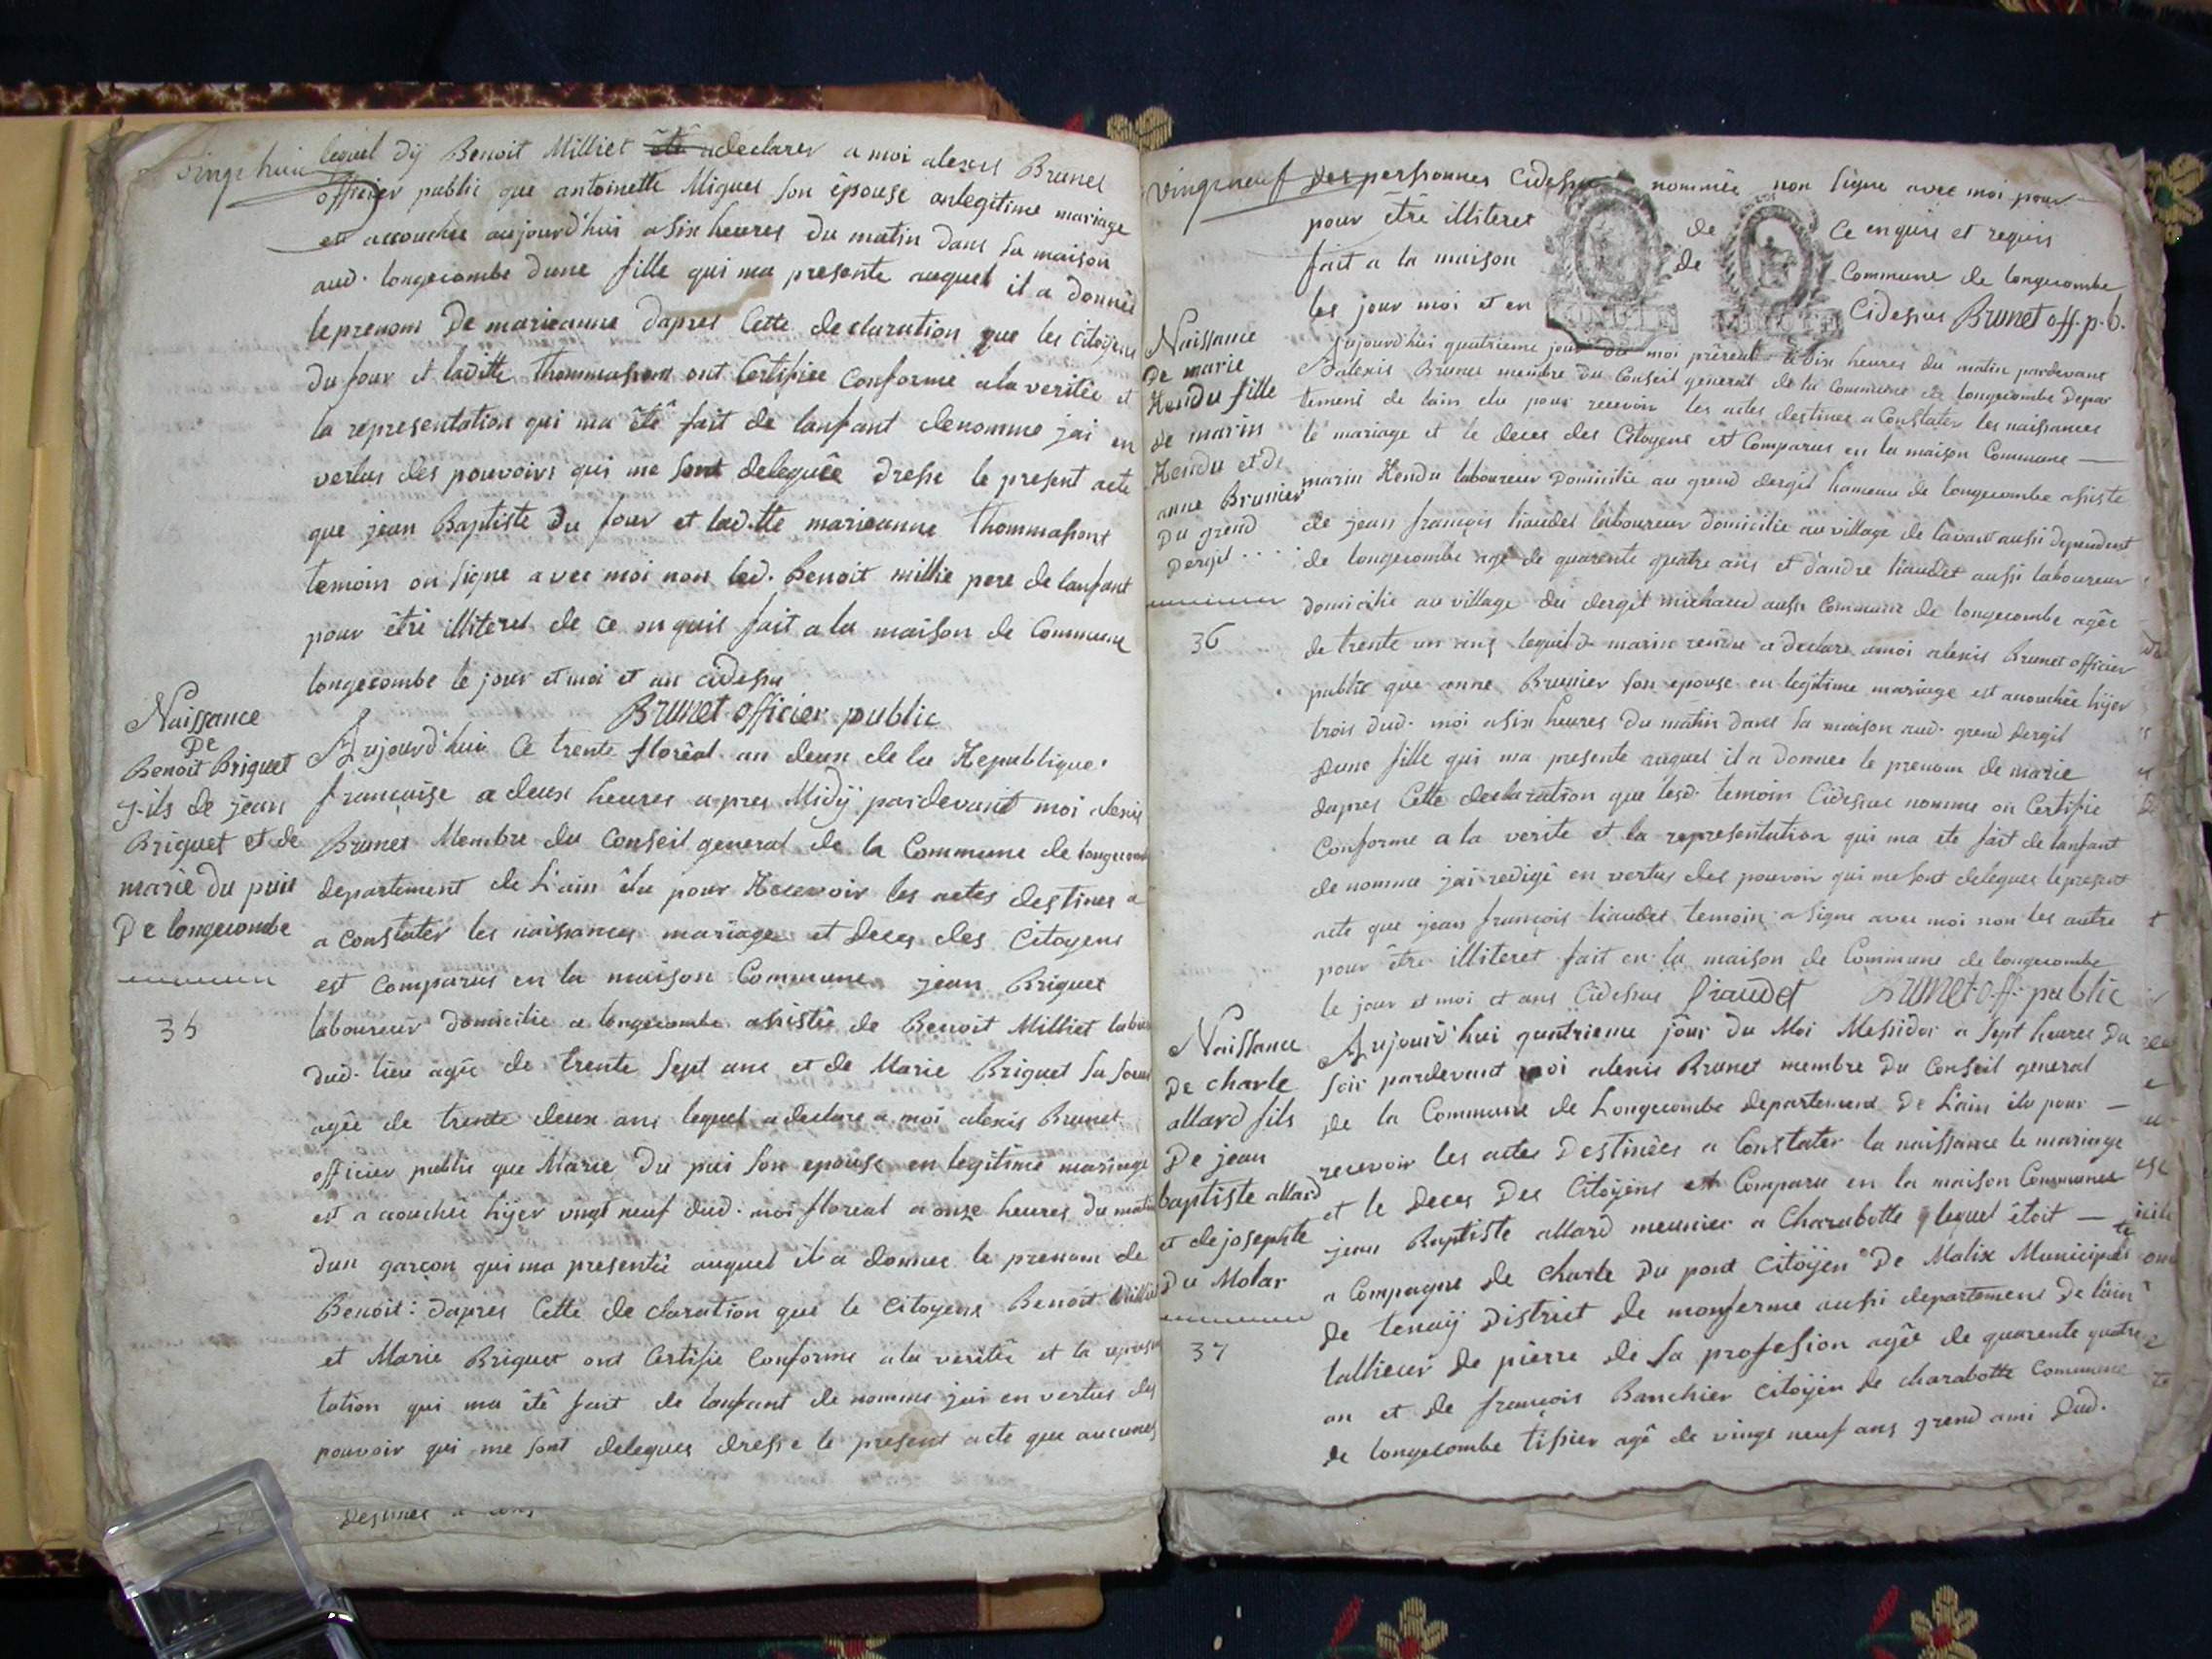 vingt huit
lequel dÿ Benoit Milliet adeclarer a moi alexis Brunet
officier public que antoinette Miguet son êpouse enlegitime mariage
est accouchée aujourd'hui a six heures du matin dans sa maison
aud. longecombe dune fille qui ma presente auquel il a donnês
leprenom De marieanne dapres Cette declaration que les Citoÿens
Du four et laditte thommasont ont Certifiée Conforme ala veritée et
la representation qui ma êtê fait de lanfant denomme jai en
vertus des pouvoirs qui me sont deleguêe dresse le present acte
que jean Baptiste Du four et lad.tte marieanne thommasont
temoin on signe avec moi non led. Benoit millie pere de lanfant
pour être illiteret de ce onquis fait a la maison de Commune
longecombe le jour et moi et an cidessu
Brunet officier public
Naissance
De
Benoit Briguet
fils de jean
Briguet et de
marie du puit
De longecombe
35
Aujourd'hui Ce trente floréal an deux de la Republique
francaise a deux heures apres Midÿ pardevant moi alexis
Brunet Membre du Conseil general de la Commune de longecombe
departement de L'ain êlu pour Recevoir les actes destines a
a constater les naissances mariage et deces des Citoyens
est Comparus en la maison Commune jean Briguet
laboureur domicilie a longecombe assistée de Benoit Milliet labou
dud. lieu agée de trente sept ans et de Marie Briguet sa soeur
agêe de trente deux ans lequel a declare a moi alexis Brunet
officier public que Marie du pui son epouse en legitime mariage
est accouchée hÿer vingt neuf dud. moi floréal a onze heures du matin
dun garçon qui ma presentée auquel il a donnee le prenom de
Benoit: dapres Cette declaration que le Citoyens Benoit Milliet
et Marie Briguet ont Certifie Conforme ala veritée et la represen
tation qui ma êtê fait de lanfant de nomme jai en vertus des
pouvoir qui me sont delegues dresse le present acte que aucunes
destines a cons
vingt neuf des personnes Cidessus nommée non signe avec moi pour
pour être illiteret de Ce enquis et requis
fait a la maison de Commune de longecombe
les jour moi et en Cidessus Brunet off. p. b.
Naissance
De marie
Rendu fille
de marin
Rendu et de
anne Brunier
Du grend
Dergit
36
Aujourd'hui quatrieme jour du moi prêreal a dix heures du matin pardevant
alexis Brunet membre du Conseil general de la Commune de longecombe Depar
tement de lain elu pour recevoir les actes destines a Constater les naissances
le mariage et le deces des Citoyens est Comparus en la maison Commune
marin Rendu laboureur Domicilie au grend dergit hameau de longecombe assiste
de jean françois liaudet laboureur domicilie au village de lavant aussi dependent
de longecombe agé de quarente quatre ans et d'andre liaudet aussi laboureur
domicilie au village du dergit michaud aussi Commune de longecombe agée
de trente un ans lequel d. marin rendu a declare amoi alexis Brunet officier
public que anne Brunier son epouse en legitime mariage est accouchée hÿer
trois dud. moi asix heures du matin dans sa maison aud. grend dergit
dune fille qui ma presente auquel il a donnee le prenom de marie
dapres Cette declaration que lesd. temoin Cidessus nomme on Certifie
Conforme a la verite et la representation qui ma ete fait de lanfant
denomme jai redigé en vertus des pouvoir qui me sont delegues lepresent
acte que jean françois liaudet temoin a signe avec moi non les autre
pour être illiteret fait en la maison de Commune de longecombe
le jour et moi et ans Cidessus liaudet Brunet off. public
Naissance
De charle
allard fils
De jean
baptiste allard
et de josephte
Du Molar
37
Aujourd'hui quatrieme jour du Moi Messidor a sept heures du
soir pardevant moi alexis Brunet membre du Conseil general
de la Commune de Longecombe departement De L'ain êlu pour
recevoir les actes Destinêes a Constater la naissance le mariage
et le deces Des Citoÿens est Comparu en la maison Commune
jean Baptiste allard meunier a Charabotte lequel êtoit
a Compagne de Charle Du pont Citoÿen De Malix Municipalité
De tenaÿ District de monferme aussi departement De lain
tallieur de pierre de sa profesion agêe de quarente quatre
an et de françois Banchier Citoÿen de charabotte Commune
de longecombe tissier agê de vingt neuf ans grend ami Dud.